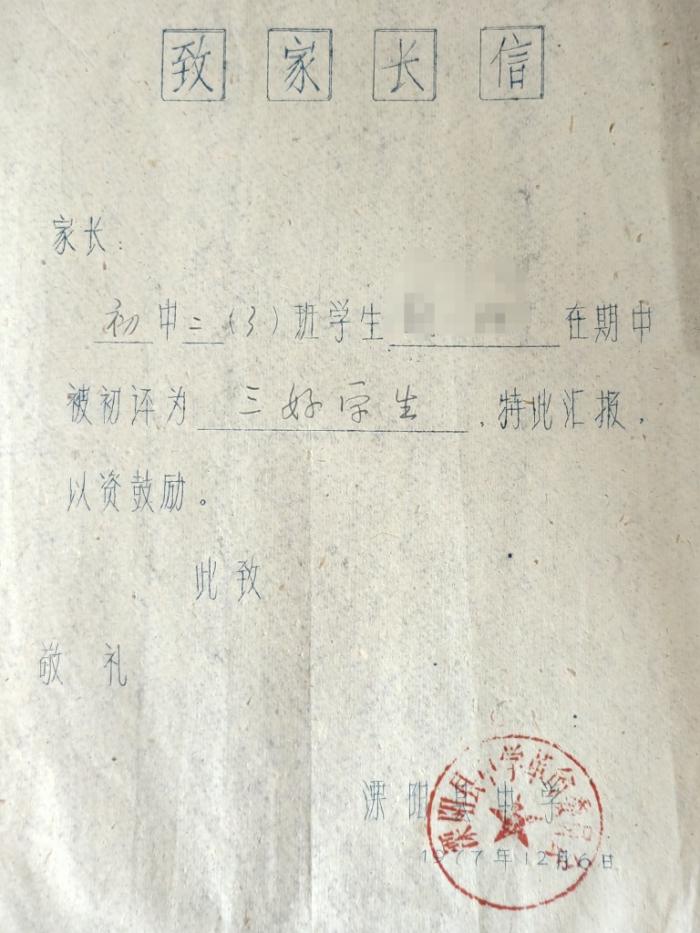 致家长信
家长:
初中二(3)班学生 在期中
被初评为三好学生,特此汇报,
以资鼓励。
此致
敬礼
溧阳县中学
1977年12月6日
溧阳县中学革命